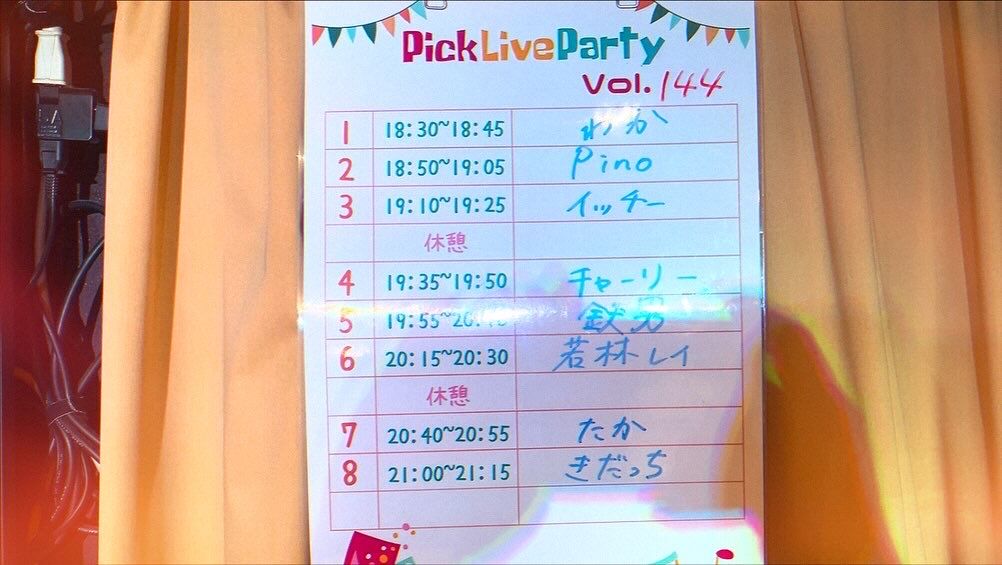 PickLiveParty
Vol.144
1 18:30~18:45 わか
2 18:50~19:05 Pino
3 19:10~19:25 イッチー
休憩
4 19:35~19:50 チャーリー
5 19:55~20: 鉄男
6 20:15~20:30 若林レイ
休憩
7 20:40~20:55 たか
8 21:00~21:15 きだっち